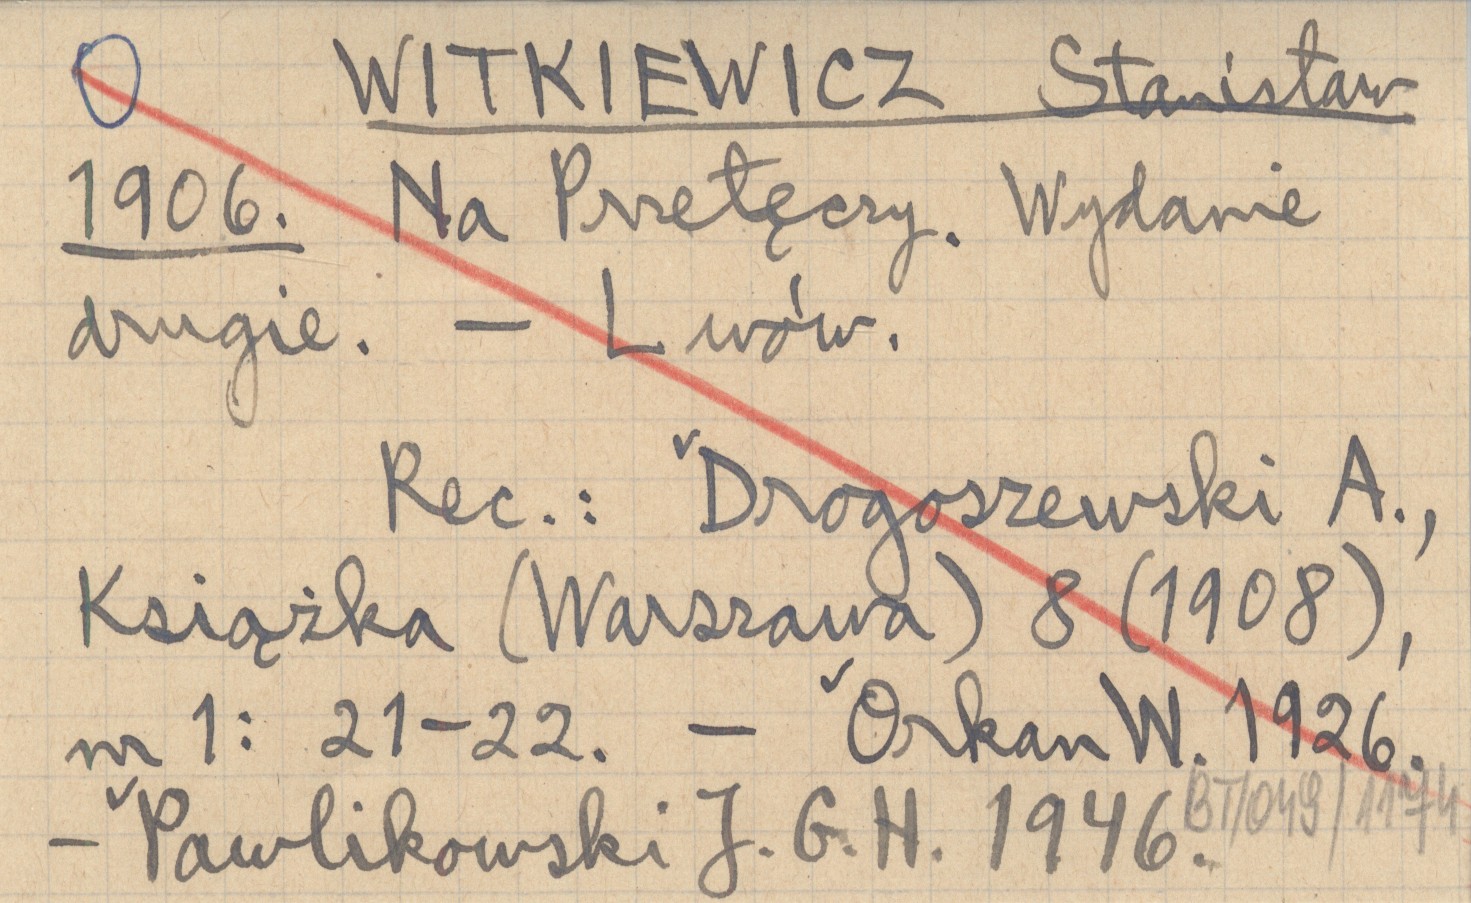 WITKIEWICZ Stanisław
1906. Na Przełęczy. Wydanie
drugie. — Lwów.
Rec.: Drogoszewski A.,
Książka (Warszawa) 8 (1908),
nr 1: 21-22. — Orkan W. 1926.
— Pawlikowski J. G. H. 1946.
BT/049/1174